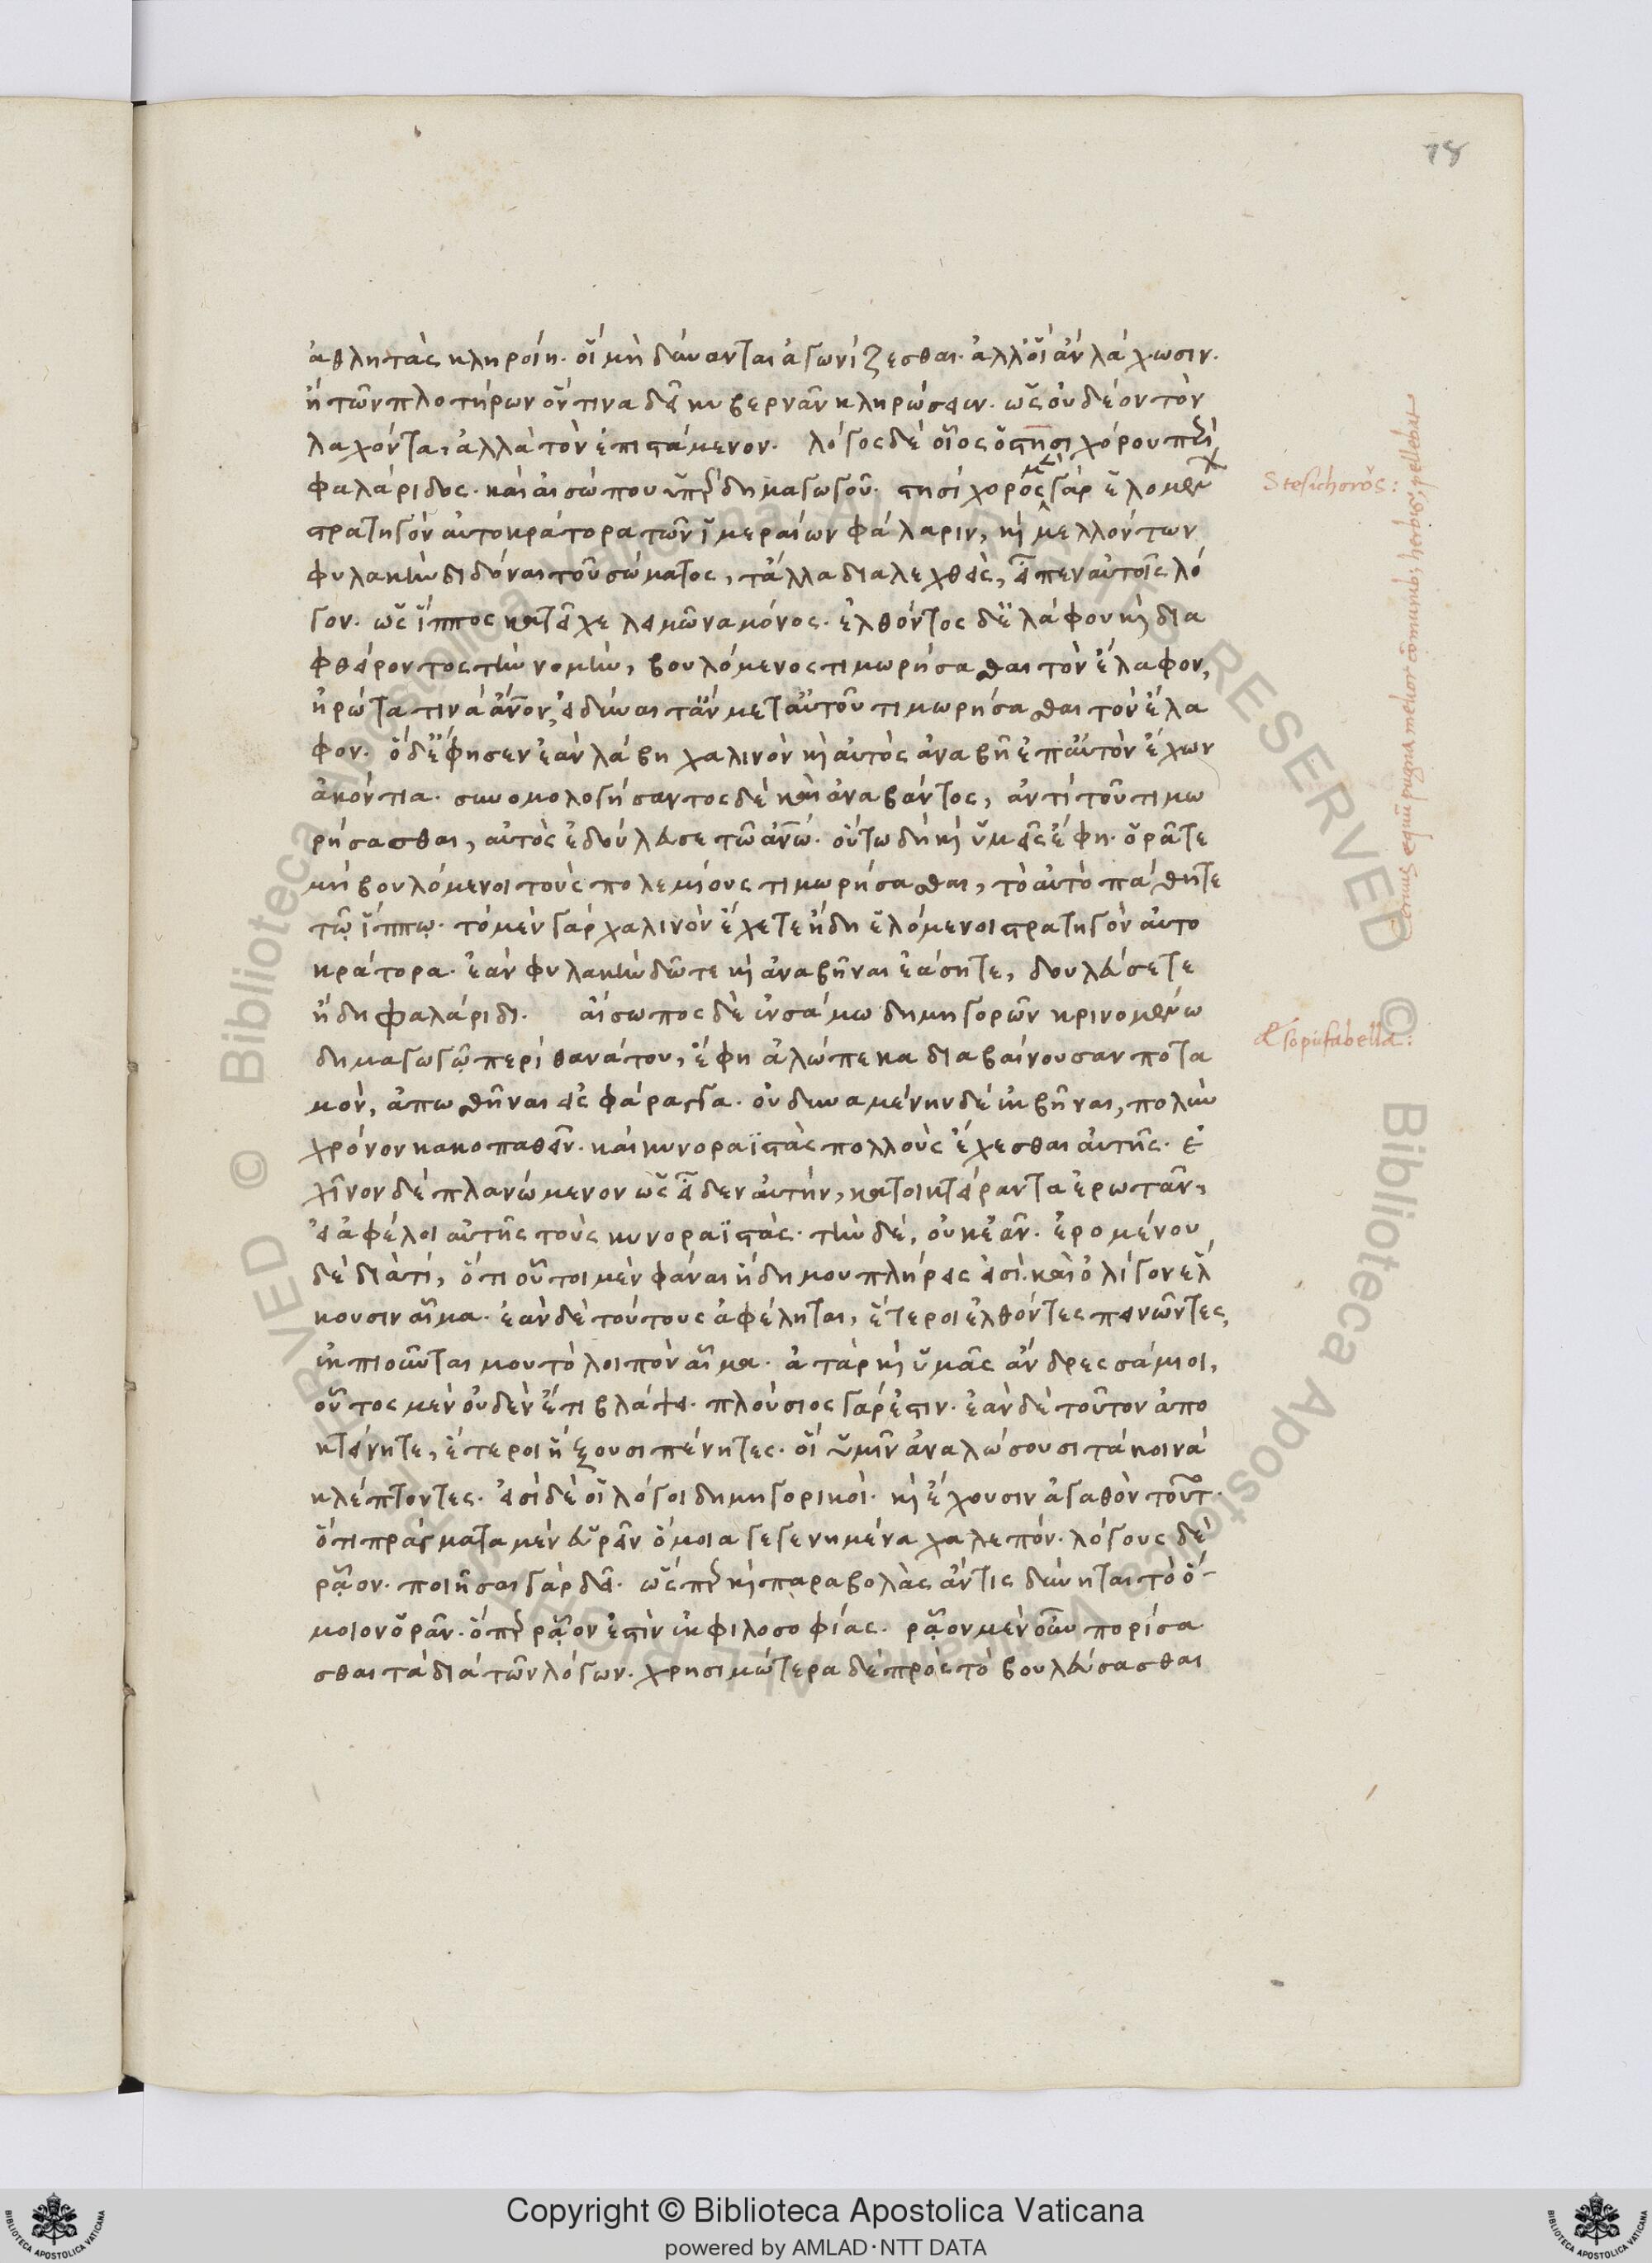 78
ἀθλητὰς κληροίη· οἳ μὴ δύνανται ἀγωνίζεσθαι· ἀλλ' οἳ ἂν λάχωσιν·
ἢ τῶν πλοτήρων ὅντινα δεῖ κυβερνᾶν κληρώσειεν· ὡς οὐ δέον τὸν
λαχόντα, ἀλλὰ τὸν ἐπιστάμενον· λόγος δὲ οἷος ὁ στησιχόρου περὶ
φαλάριδος· καὶ αἰσώπου ὑπὲρ δημαγωγοῦ· στησίχορος μὲν γὰρ ἑλομένων
στρατηγὸν αὐτοκράτορα τῶν ἱμεραίων φάλαριν, καὶ μελλόντων
φυλακὴν διδόναι τοῦ σώματος, τἄλλα διαλεχθεὶς, εἶπεν αὐτοῖς λό
γον· ὡς ἵππος κατεῖχε λειμῶνα μόνος· ἐλθόντος δ' ἐλάφου καὶ δια
φθείροντος τὴν νομὴν, βουλόμενος τιμωρήσασθαι τὸν ἔλαφον,
ἠρώτα τινὰ ἄνον, εἰ δύναιτ' ἂν μετ' αὐτοῦ τιμωρήσασθαι τὸν ἔλα
φον· ὁ δ' ἔφησεν ἐὰν λάβη χαλινὸν καὶ αὐτὸς ἀναβῆ ἐπ' αὐτὸν ἔχων
ἀκόντια· συνομολογήσαντος δὲ καὶ ἀναβάντος, ἀντὶ τοῦ τιμω
ρήσασθαι, αὐτὸς ἐδούλευσε τῶ ἀνω· οὕτω δὴ καὶ ὑμεῖς ἔφη· ὁρᾶτε
μὴ βουλόμενοι τοὺς πολεμίους τιμωρήσασθαι, τὸ αὐτὸ πάθητε
τῷ ἵππῳ· τὸ μὲν γὰρ χαλινὸν ἔχετε ἤδη ἑλόμενοι στρατηγὸν αὐτο
κράτορα· ἐὰν φυλακὴν δῶτε καὶ ἀναβῆναι ἐάσητε, δουλεύσετε
ἤδη φαλάριδι· αἴσωπος δὲ ἐν σάμω δημηγορῶν κρινομένω
δημαγωγῷ περὶ θανάτου, ἔφη ἀλώπεκα διαβαίνουσαν ποτα
μὸν, ἀπωσθῆναι εἰς φάραγγα· οὐ δυναμένην δὲ ἐκβῆναι, πολὺν
χρόνον κακοπαθεῖν· καὶ κυνοραϊστὰς πολλοὺς ἔχεσθαι αὐτῆς· ἐ
χῖνον δὲ πλανώμενον ὡς εἶδεν αὐτὴν, κατοικτείραντα ἐρωτᾶν,
εἰ ἀφέλοι αὐτῆς τοὺς κυνοραϊστάς· τὴν δὲ, οὐκ ἐᾶν· ἐρομένου
δὲ διὰτί, ὅτι οὗτοι μὲν φάναι ἤδη μου πλήρεις εἰσὶ· καὶ ὀλίγον ἕλ
κουσιν αἷμα· ἐὰν δὲ τούτους ἀφέληται, ἕτεροι ἐλθόντες πεινῶντες,
ἐκπιοῦνται μου τὸ λοιπὸν αἷμα· ἀτὰρ καὶ ὑμᾶς ἄνδρες σάμιοι,
οὗτος μὲν οὐδὲν ἔτι βλάψει· πλούσιος γάρ ἐστιν· ἐὰν δὲ τοῦτον ἀπο
κτείνητε, ἕτεροι ἥξουσι πένητες· οἳ ὑμῖν ἀναλώσουσι τὰ κοινὰ
κλέπτοντες· εἰσὶ δὲ οἱ λόγοι δημηγορικοὶ· καὶ ἔχουσιν ἀγαθὸν τοῦτ·
ὅτι πράγματα μὲν εὑρεῖν ὅμοια γεγενημένα χαλεπόν· λόγους δὲ
ρᾷον· ποιῆσαι γὰρ δεῖ· ὥσπερ καὶ παραβολὰς ἄν τις δύνηται τὸ ὅ-
μοιον ὁρᾶν· ὅπερ ρᾷόν ἐστιν ἐκ φιλοσοφίας· ρᾷον μὲν οὖν πορίσα
σθαι τὰ διὰ τῶν λόγων· χρησιμώτερα δὲ πρὸς τὸ βουλεύσασθαι
Stesichorŏs:
Cervus equũ pugna melior cõmunib; herbis pellebat
Æsopi fabella:
Copyright © Biblioteca Apostolica Vaticana
powered by AMLAD·NTT DATA